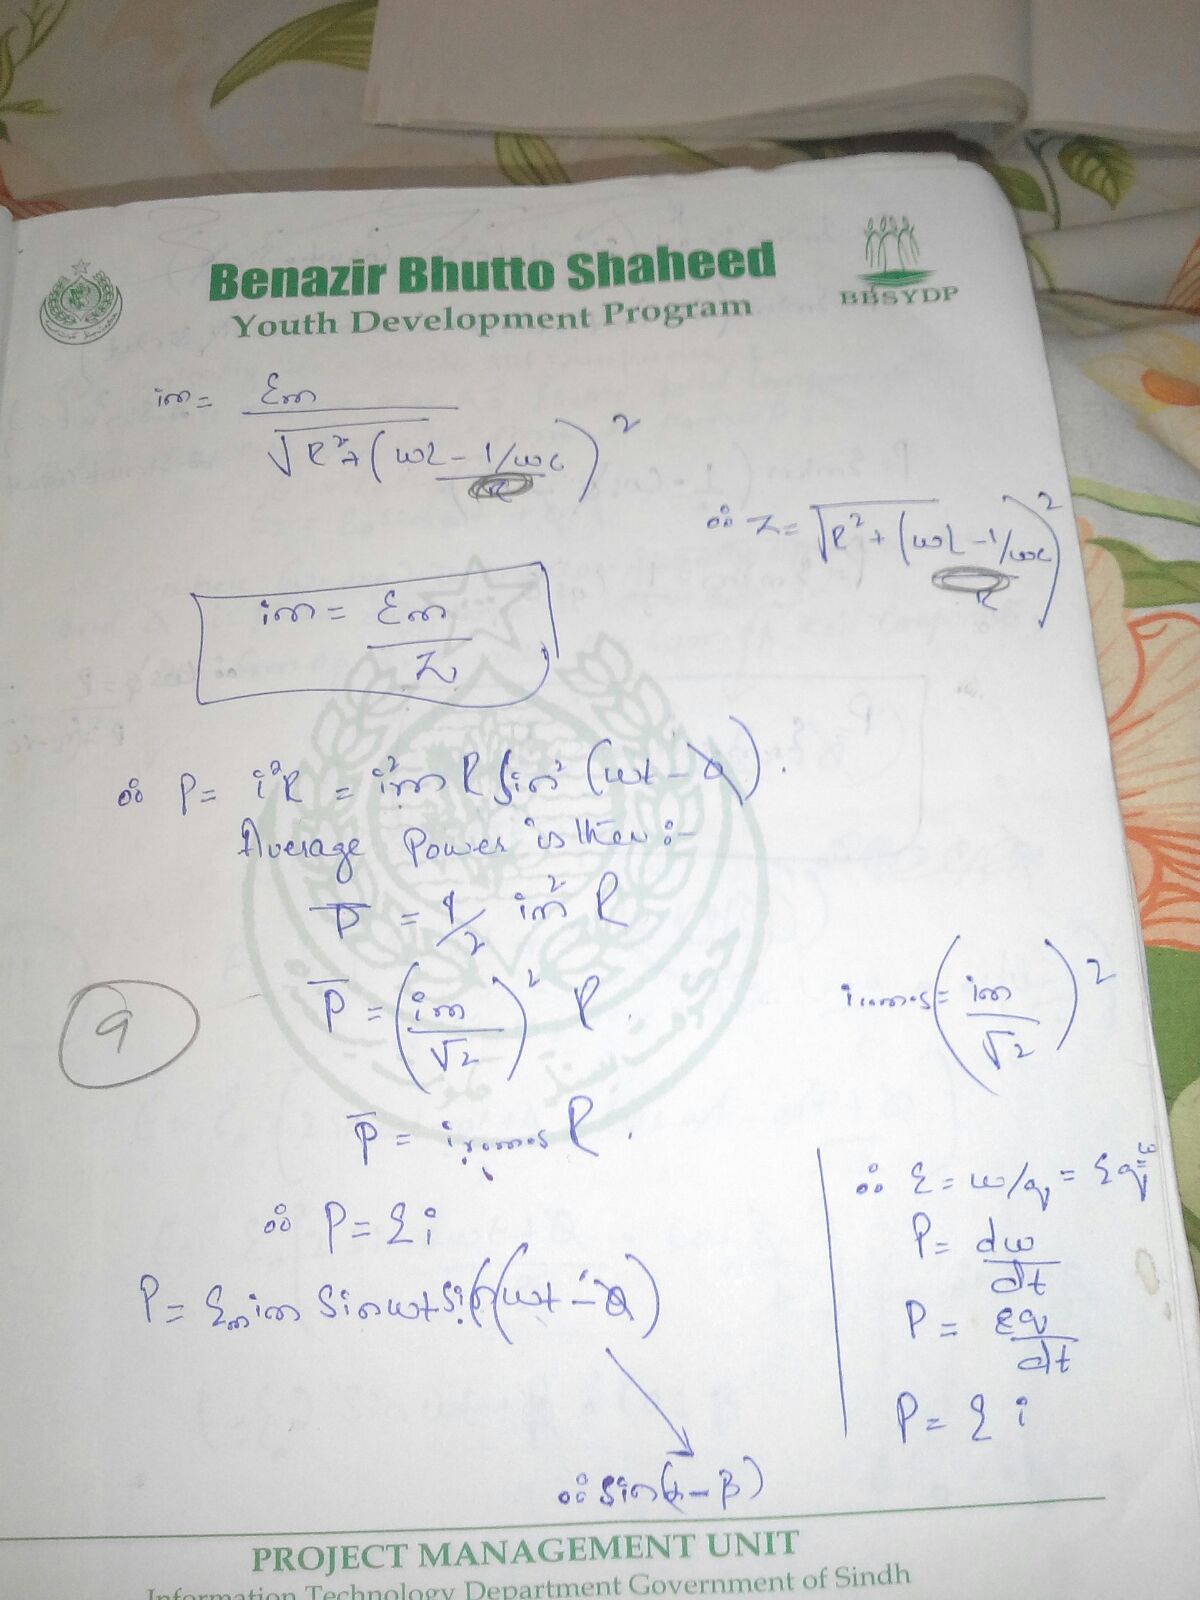 Benazir Bhutto Shaheed
Youth Development Program
BBSYDP
im = Ɛm / √R² + (ωL - 1/ωc)²
∴ Z = √R² + (ωL - 1/ωc)²
im = Ɛm / Z
∴ P = i²R = i²m R Sin² (ωt - ϕ).
Average Power is then :-
P̅ = 1/2 im² R
P̅ = (im/√2)² R.
i r.m.s = (im/√2)²
9
P̅ = i r.m.s R.
∴ P = Ɛ i
P = Ɛm im Sin ωt Sin (ωt - ϕ)
∴ Sin(α - β)
∴ Ɛ = w/q = Ɛq = w
P = dw/dt
P = Ɛq/dt
P = Ɛ i
PROJECT MANAGEMENT UNIT
Information Technology Department Government of Sindh